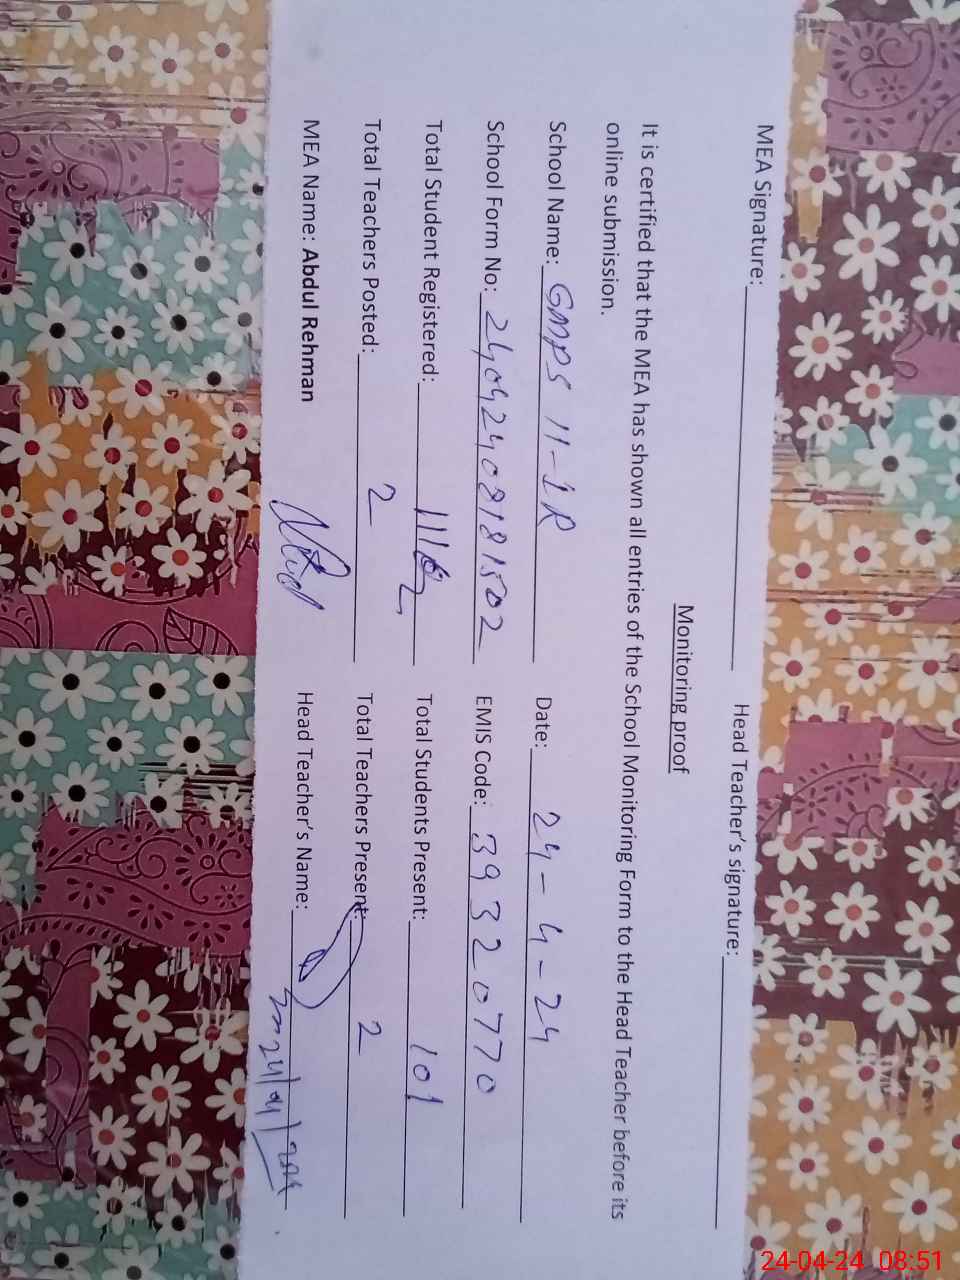 MEA Signature: Head Teacher's signature:
Monitoring proof
It is certified that the MEA has shown all entries of the School Monitoring Form to the Head Teacher before its
online submission.
School Name: GMPS 11-1R Date: 24-4-24
School Form No: 24042408181502 EMIS Code: 39320770
Total Student Registered: Total Students Present: 101
Total Teachers Posted: 2 Total Teachers Present: 2
MEA Name: Abdul Rehman Head Teacher's Name:
24-04-24 08:51